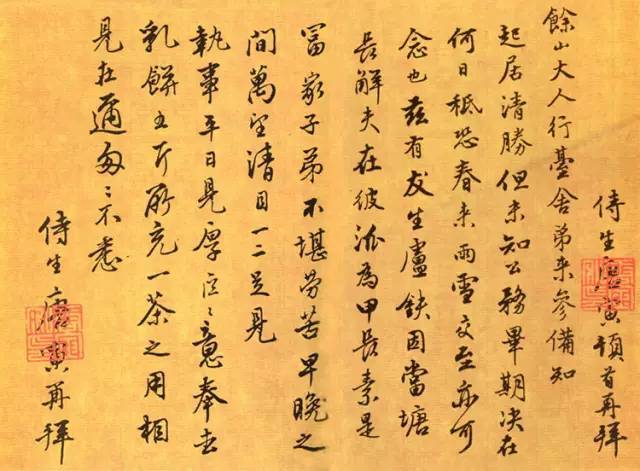 侍生唐寅頓首再拜
餘山大人行臺舍弟來參備知
起居清勝但未知公務畢期決在
何日秪恐春來雨雪交至亦可
念也茲有友生盧鈇因當塘
長解夫在彼派為甲長素是
富家子弟不堪勞苦早晚之
間萬望清目一二足見
執事平日見厚區區之意奉去
乳餅五斤所充一茶之用相
見在邇匆匆不悉
侍生唐寅再拜